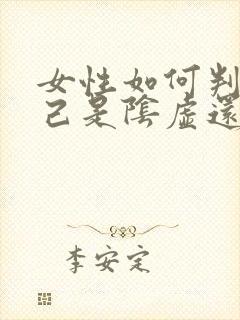 女性如何判
己是陰虛還
李安定